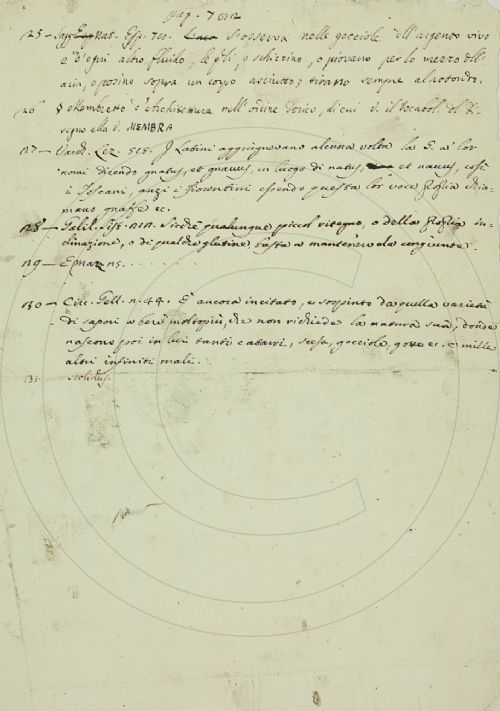 pag. 7
25 — Sagg. Nat. Esp. 751. S'osserva nelle gocciole dell'argento vivo
e d'ogni altro fluido, le q.li, o schizzino, o piovano per lo mezzo dell'
aria, o posino sopra un corpo asciutto; tirano sempre al rotondo.
26 § Membretto è d'Architettura nell'ordine Dorico, di cui v. il Vocabol. del Di-
segno alla v. MEMBRA
27 — Varch. Lez. 515. I Latini aggiugnevano alcuna volta la G. a' lor
nomi dicendo gnatus, et gnavus, in luogo di natus, et navus, così
i Toscani, anzi i Fiorentini essendo questa lor voce stessa chia-
mano gnaffe ec.
128 — Galil. Sist. Sicchè qualunque piccol ritegno, o della stessa in-
clinazione, o di qualche glutine basta a mantenervela congiunte.
129 —
130 — Circ. Gell. n. 44. È ancora incitato, e sospinto da quella varietà
di sapori a bere molto più, che non richiede la natura sua, donde
nascono poi in lui tanti catarri, scese, gocciole, gotte ec. e mille
altri infiniti mali.
131. stolidus.